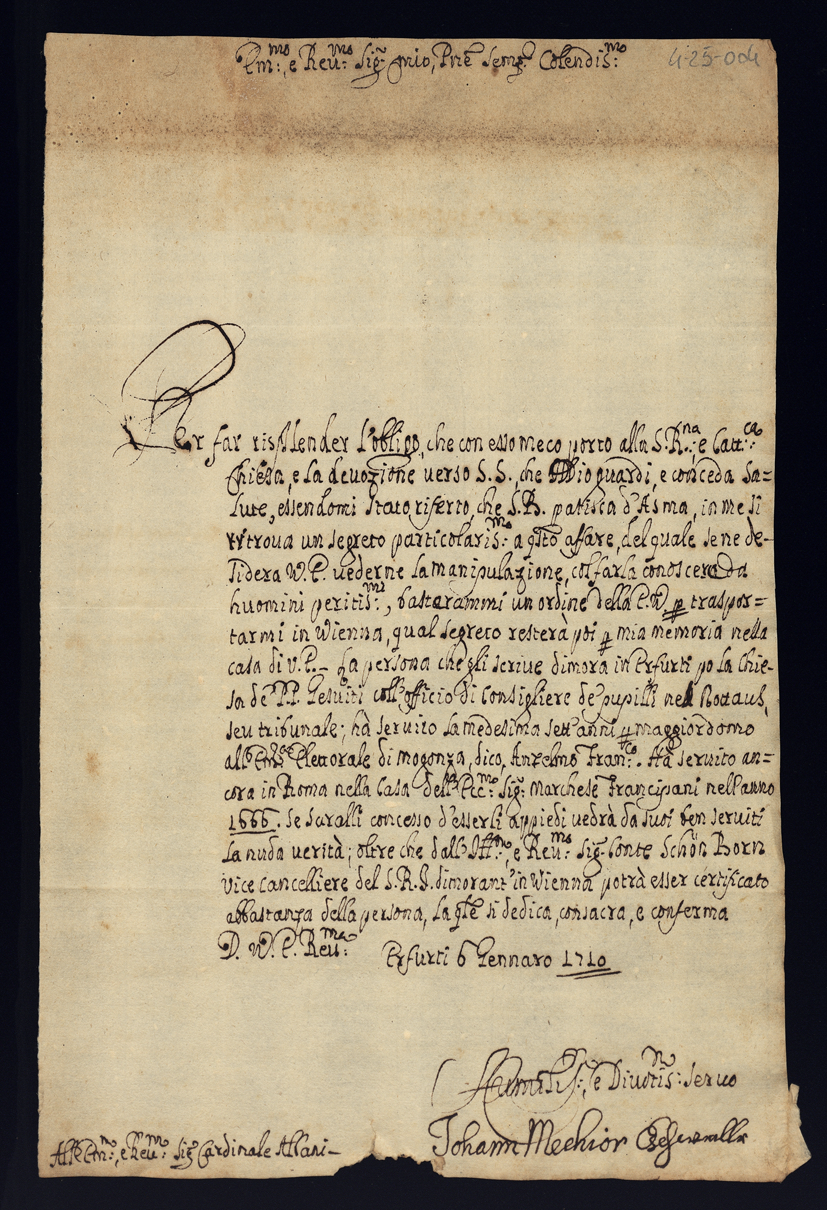 Em:mo, e Reu:mo Sig.r mio, Prne Semp.e Colendis:mo
4-25-004
Per far risplender l'obligo, che con esso meco porto alla S. R:na e Catt:ca
Chiesa, e la devozione verso S. S., che Iddio guardi, e conceda sa=
lute, essendomi stato riferto, che S. B. patisca d'Asma, in me si
ritroua un segreto particolaris:mo a qsto affare, del quale se ne de-
sidera V. E. uederne la manipulazione, col farla conoscere da
huomini peritis:mi, basterammi un ordine della E. V. p traspor=
tarmi in Wienna, qual segreto resterà poi p mia memoria nella
casa di V. E. – La persona che gli scriue dimora in Erfurti po la Chie-
sa de' PP. Gesuiti coll'officio di Consigliere de' pupilli nel Rottaus,
seu tribunale; hà seruito la medesima sett'anni p maggiordomo
all' Em: Elettorale di Mogonza, dico, Anzelmo Fran:co. Hà seruito an-
cora in Roma nella Casa dell' Ecc:mo Sig.r Marchese Francipani nell'anno
1666. Se saralli concesso d'esserli appiedi uedrà da suoi ben seruiti
la nuda verità; oltre che dall' Ill:mo, e Reu:mo Sig.r Conte Schön Born
Vice Cancelliere del S. R. I. dimorant' in Wienna potrà esser certificato
abbastanza della persona, la qle si dedica, consacra, e conferma
D. V. E. Reu:ma
Erfurti 6 Gennaro 1710
Humilis:, e Diuotis:mo seruo
Johann Mechior
All' Em:mo, e Reu:mo Sig.r Cardinale Albani –